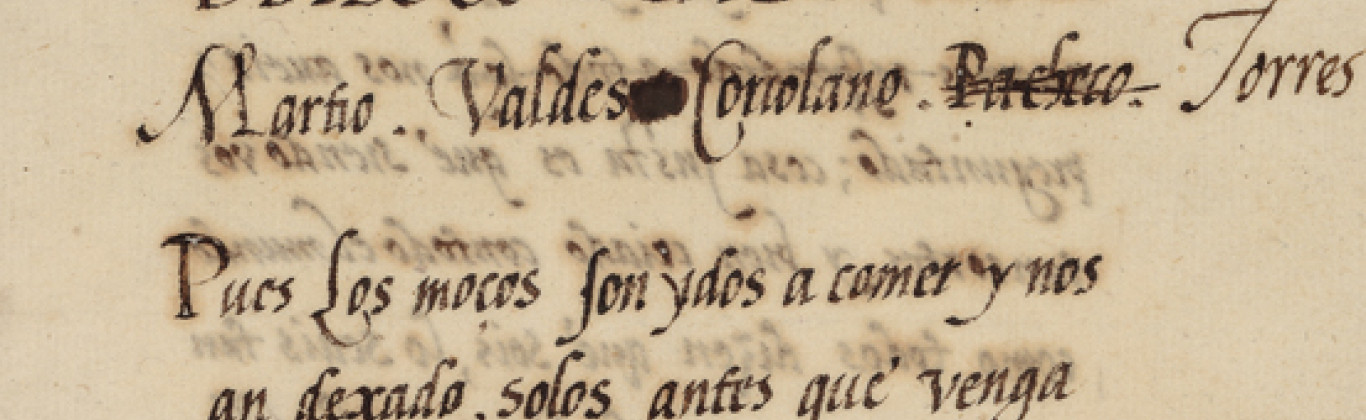 Martio. Valdes Coriolano. Pacheco. Torres
Pues Los moços son ydos a comer y nos
an dexado, solos antes que venga